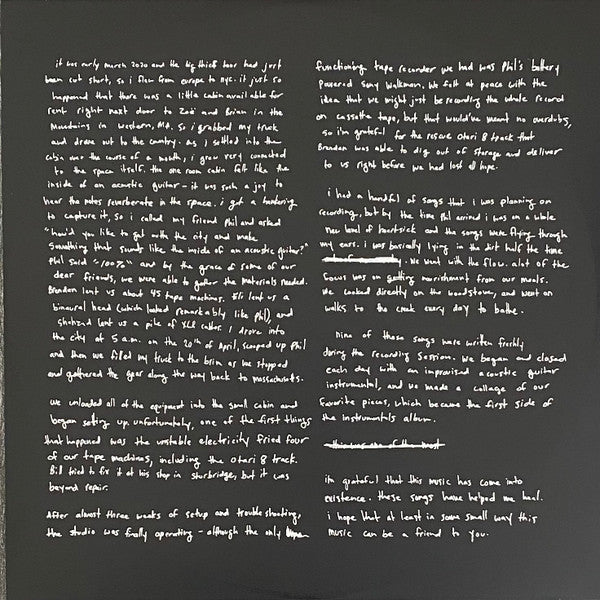 it was early march 2020 and the big thief tour had just
been cut short, so i flew from europe to nyc. it just so
happened that there was a little cabin available for
rent right next door to Zoë and Brian in the
mountains in western, Ma. So i grabbed my truck
and drove out to the country. As i settled into the
cabin over the course of a month, i grew very connected
to the space itself. the one room cabin felt like the
inside of an acoustic guitar - it was such a joy to
hear the notes reverberate in the space. i got a hankering
to capture it, so i called my friend Phil and asked
"how'd you like to get outta the city and make
something that sounds like the inside of an acoustic guitar?"
Phil said "100%" and by the grace of some of our
dear friends, we were able to gather the materials needed.
Brendan lent us about 45 tape machines. Eli lent us a
binaural head (which looked remarkably like Phil), and
shahzad lent us a pile of XLR cables. I drove into
the city at 5 a.m. on the 20th of April, scooped up Phil
and then we filled my truck to the brim as we stopped
and gathered the gear along the way back to massachusetts.
we unloaded all of the equipment into the small cabin and
began setting up. unfortunately, one of the first things
that happened was the unstable electricity fried four
of our tape machines, including the otari 8 track.
Bill tried to fix it at his shop in sturbridge, but it was
beyond repair.
After almost three weeks of setup and trouble shooting,
the studio was finally operating - although the only
functioning tape recorder we had was Phil's battery
powered Sony Walkman. We felt at peace with the
idea that we might just be recording the whole record
on cassette tape, but that would've meant no overdubs,
so i'm grateful for the rescue otari 8 track that
Brendan was able to dig out of storage and deliver
to us right before we had lost all hope.
i had a handful of songs that i was planning on
recording, but by the time Phil arrived i was on a whole
new level of heartsick and the songs were flying through
my ears. i was basically lying in the dirt half the time
. We went with the flow. alot of the
focus was on getting nourishment from our meals.
We cooked directly on the woodstove, and went on
walks to the creek every day to bathe.
Nine of these songs were written freshly
during the recording session. We began and closed
each day with an improvised acoustic guitar
instrumental, and we made a collage of our
favorite pieces, which became the first side of
the instrumentals album.
this was one of the most
im grateful that this music has come into
existence. these songs have helped me heal.
i hope that at least in some small way this
music can be a friend to you.